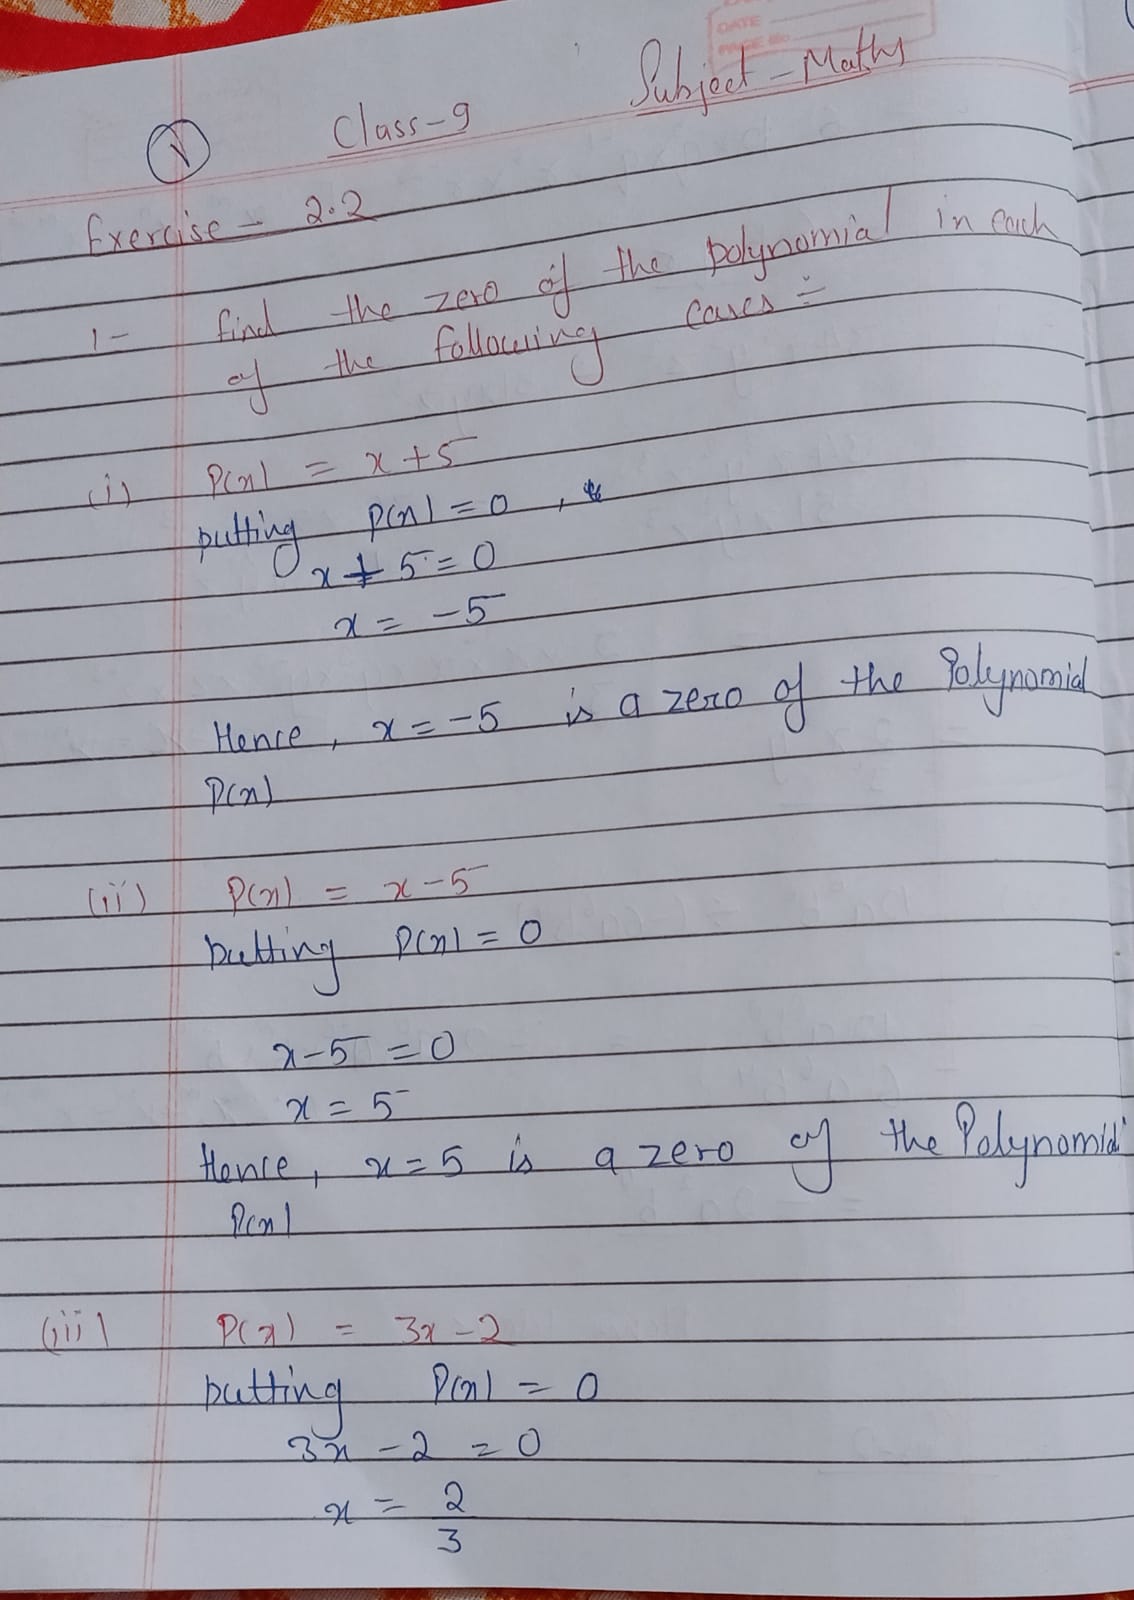 DATE
PAGE No.
Subject - Maths
Class-9
Exercise - 2.2
1- find the zero of the polynomial in each
of the following cases :-
(i) P(x) = x + 5
putting P(x) = 0 ,
x + 5 = 0
x = -5
Hence, x = -5 is a zero of the Polynomial
P(x)
(ii) P(x) = x - 5
putting P(x) = 0
x - 5 = 0
x = 5
Hence, x = 5 is a zero of the Polynomial
P(x)
(iii) P(x) = 3x - 2
putting P(x) = 0
3x - 2 = 0
x = 2/3